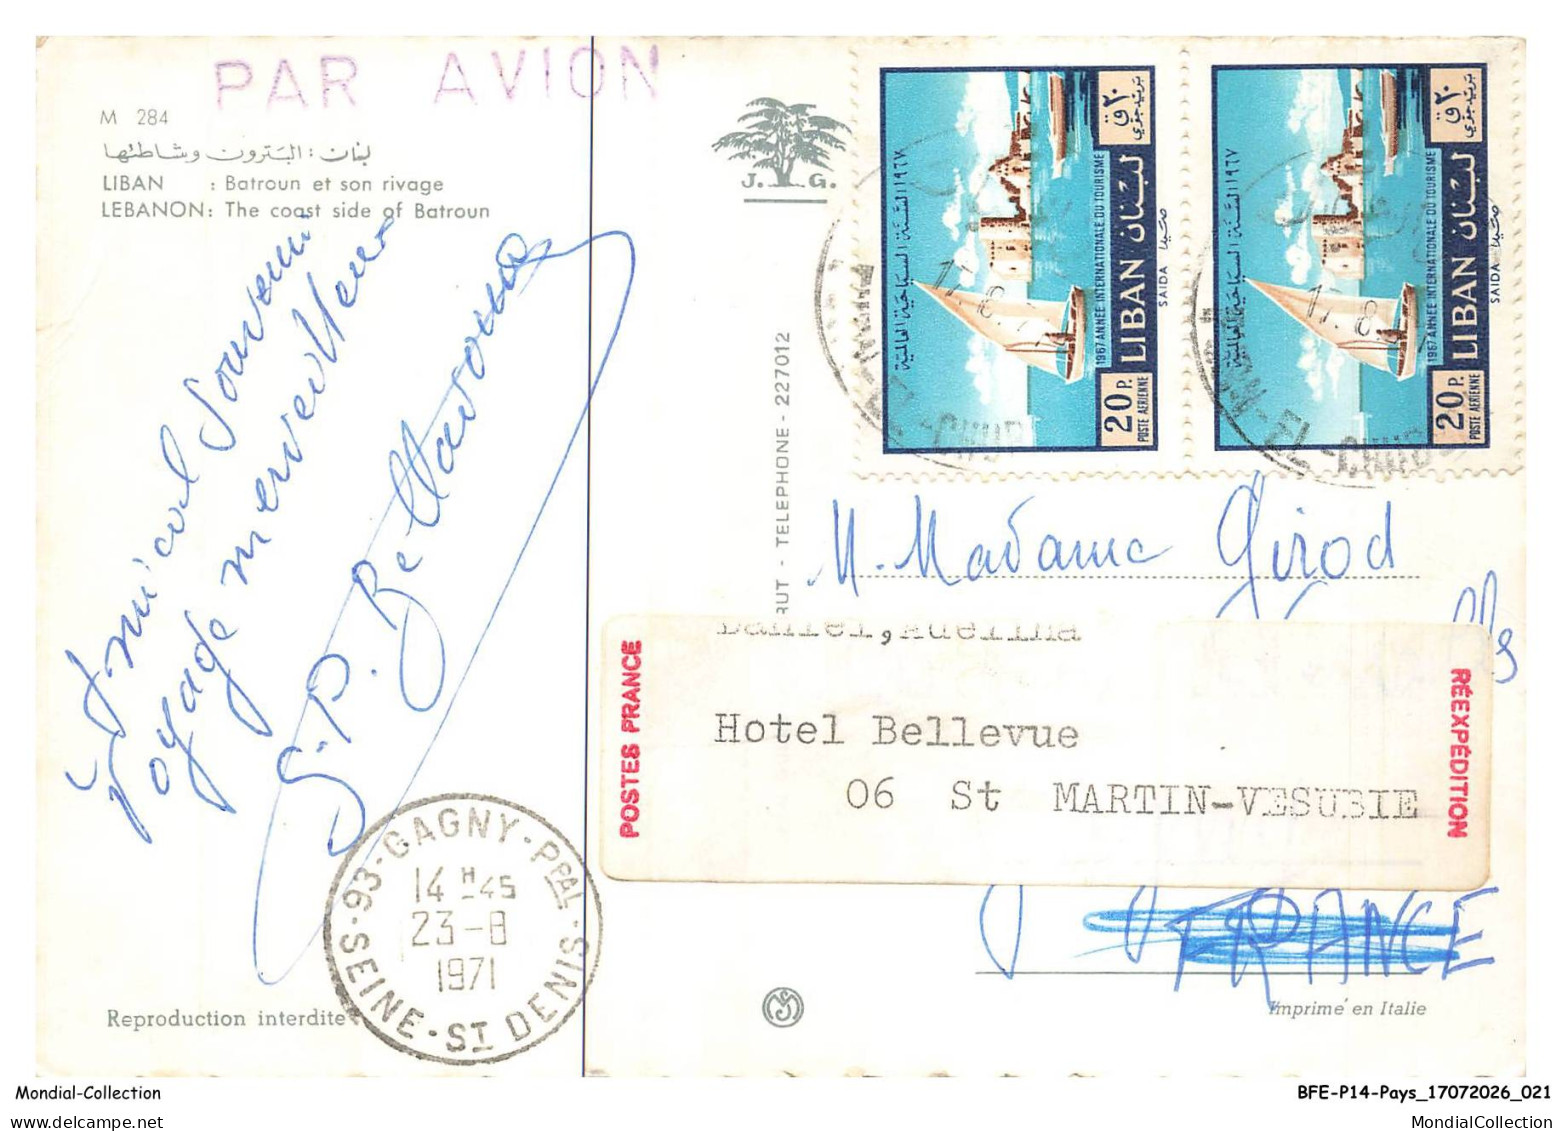 PAR AVION
M 284
لبنان : البترون وشاطئها
LIBAN : Batroun et son rivage
LEBANON: The coast side of Batroun
Amical Souvenir
voyage merveilleux
J. G.
RUT - TELEPHONE - 227012
١٩٦٧ السنة السياحية العالمية
1967 ANNÉE INTERNATIONALE DU TOURISME
LIBAN لبنان
20 P.
POSTE AÉRIENNE
٢٠ ق
بريد جوي
SAIDA صيدا
17. 8
١٩٦٧ السنة السياحية العالمية
1967 ANNÉE INTERNATIONALE DU TOURISME
LIBAN لبنان
20 P.
POSTE AÉRIENNE
٢٠ ق
بريد جوي
SAIDA صيدا
17. 8
EL-CHUB
M. Madame Girod
POSTES FRANCE
RÉEXPÉDITION
Hotel Bellevue
06 St MARTIN-VESUBIE
FRANCE
93-GAGNY-PPAL
14 H 45
23-8
1971
SEINE-ST DENIS
Reproduction interdite
Imprimé en Italie
Mondial-Collection
BFE-P14-Pays_17072026_021
MondialCollection